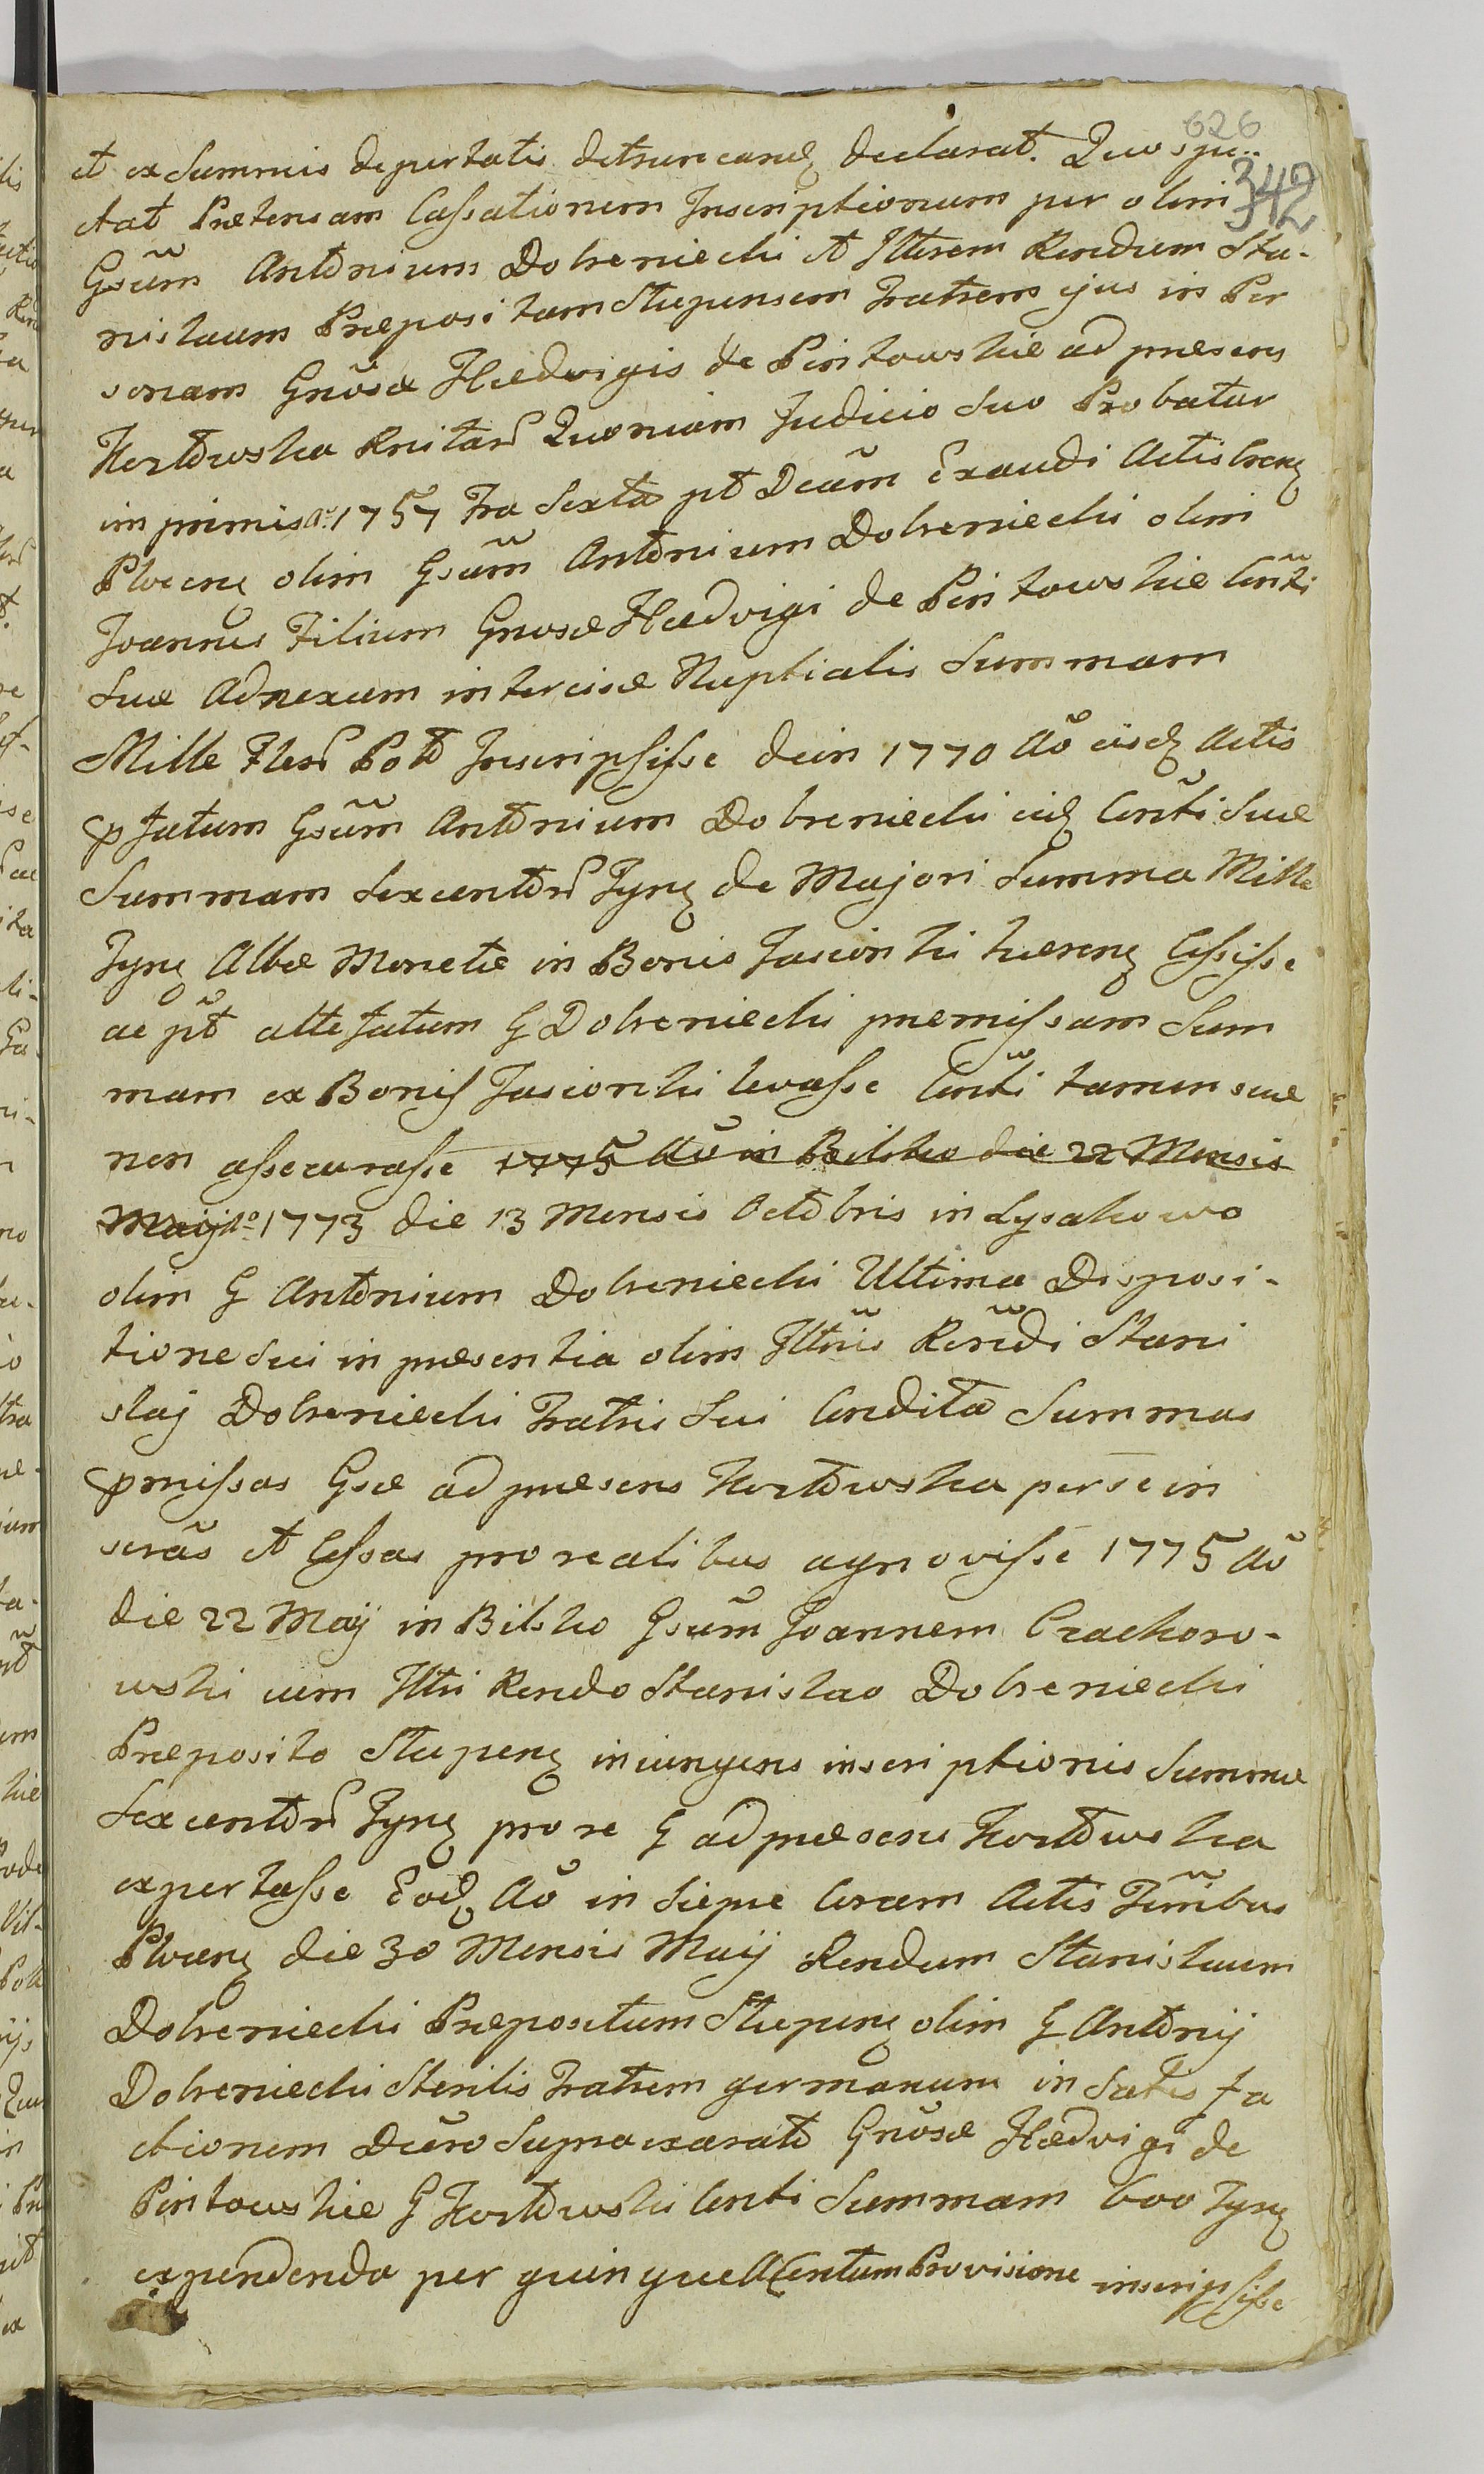 626
et ex Summis depertatis detruncand declarat. Quo spe..
342
ctat Prætensam Cassationem Inscriptionum per olim
Gsum Antonium Dobreniecki et Illrem Rendum Sta-
nislaum Præpositum Stupensem Fratrem ejus in Per
sonam Gnosæ Hædvigis de Pintowskie ad præsens
Kortowska Quoniam Judicio Suo Probatur
imprimis Ao 1757 Fra Sexta pt Dcam Exaudi Actis
Plocen olim Gsum Antonium Dobreniecki olim
Joannis Filium Gnosæ Hædvigi de Pintowskie Conti
Suæ Adnexam intercisæ Nuptialis Summam
Mille Flor Polo Inscripsisse dein 1770 Ao eisd Actis
pfatum Gsum Antonium Dobreniecki eid Conti Suæ
Summam Sexcentor Tynf de Majori Summa Mille
Tynf Albæ Monetæ in Bonis Jasionki hæren Cessisse
ac pt attefatum G Dobreniecki præmissam Sum
mam ex Bonis Jasionki levasse Conti tamen suæ
non assecurasse 1775 Ao in Bilsko die 22 Mensis
Maij Ao 1773 die 13 Mensis Octobris in Lysakowo
olim G Antonium Dobreniecki Ultima Disposi-
tione Sui in præsentia olim Illris Rendi Stani
slaj Dobreniecki Fratris Sui Condita Summas
pmissas Gsæ ad præsens Kortowska per se in
scras et Cessas pro realibus agnovisse 1775 Ao
die 22 Maij in Bilsko Gsum Joannem Czachoro-
wski cum Illri Rendo Stanislao Dobreniecki
Præposito Stupen iniungens inscriptionis Summæ
Sexcentor Tynf pro re G ad præsens Kortowska
expertasse Eod Ao in Siepie Coram Actis Trimbus
Plocen die 30 Mensis Maij Rendum Stanislaum
Dobreniecki Præpositum Stupen olim G Antonij
Dobreniecki Sterilis Fratrem germanum in Satis fa
ctionem Dcæro Supra exarato Gnosæ Hædvigi de
Pintowskie G Kortowski Conti Summam 600 Tynf
expendenda per quinque A Centum Provisione inscripsisse